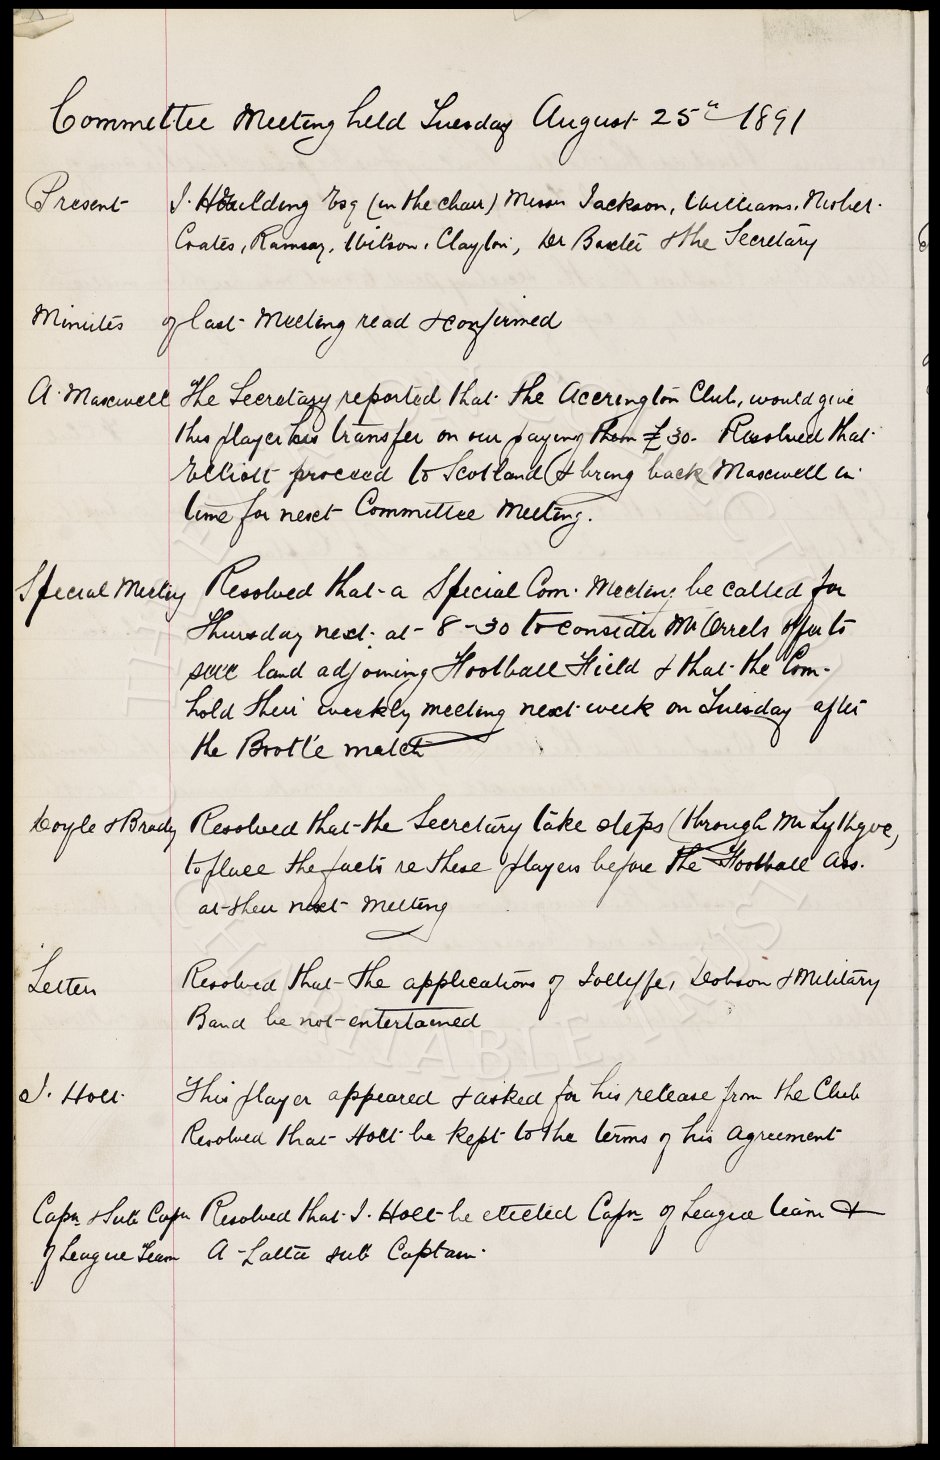 Committee Meeting held Tuesday August 25th 1891
Present J. Houlding Esq (in the chair) Messrs Jackson, Williams, Nisbet.
Coates, Ramsay, Wilson, Clayton, Dr Baxter & the Secretary
Minutes of last Meeting read & confirmed
A. Maxwell The Secretary reported that the Accrington Club, would give
this player his transfer on our paying them £30. Resolved that
Elliott proceed to Scotland & bring back Maxwell in
time for next Committee Meeting.
Special Meeting Resolved that a Special Com. Meeting be called for
Thursday next at 8-30 to consider Mr Orrels offer to
sell land adjoining Football Field & that the Com.
hold their weekly meeting next week on Tuesday after
the Bootle match
Doyle & Brady Resolved that the Secretary take steps (through Mr Lythgoe,
to place the facts re these players before the Football Ass.
at their next Meeting
Letters Resolved that the applications of Jolliffe, Dobson & Military
Band be not entertained
J. Holt This player appeared & asked for his release from the Club
Resolved that Holt be kept to the terms of his agreement
Capn & Sub Capn Resolved that J. Holt be elected Capn of League team &
of League Team A Latta sub Captain.
THE EVERTON COLLECTION
CHARITABLE TRUST